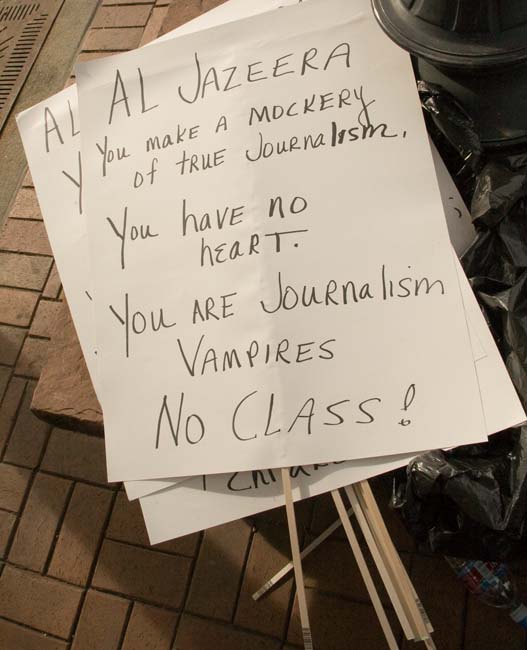 AL JAZEERA
You MAKE A MOCKERY
of TRUE JournaLISM.
You have no
heart.
You ARE Journalism
VAMPIRES
No CLASS!
AL
Y